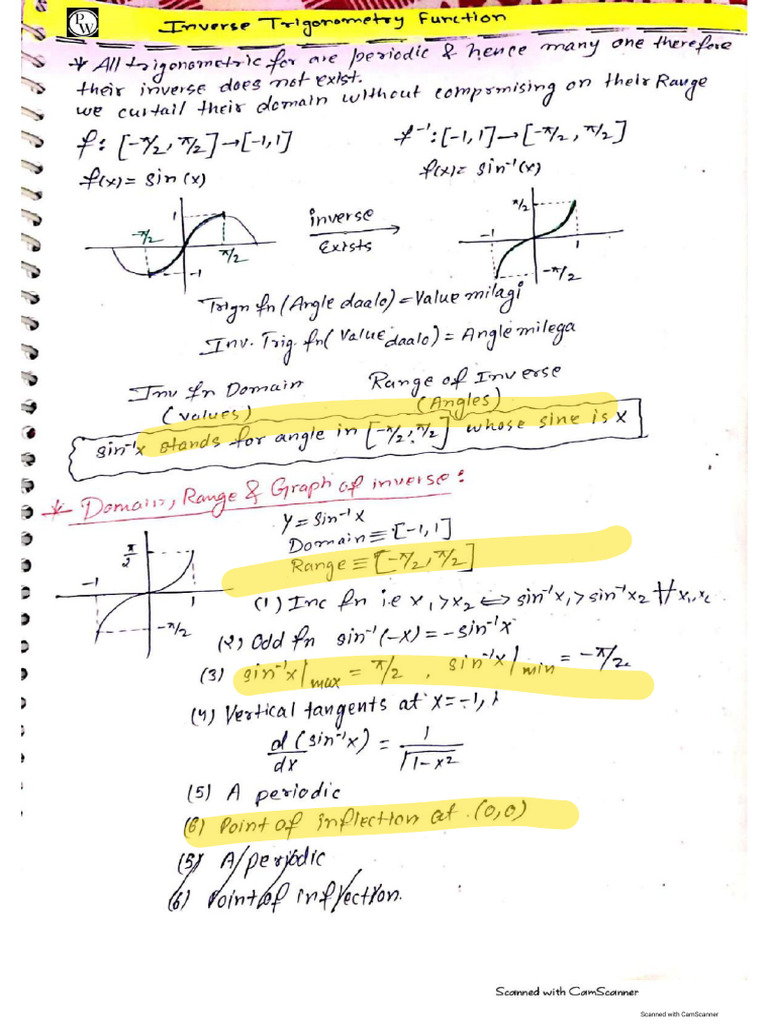 PW
Inverse Trigonometry Function
* All trigonometric fn are periodic & hence many one therefore
their inverse does not exist.
we curtail their domain without comprmising on their Range
f: [-π/2, π/2]→[-1,1]
f⁻¹: [-1,1]→[-π/2, π/2]
f(x)= sin (x)
f(x)= sin⁻¹(x)
1
-π/2
π/2
-1
inverse
exists
π/2
-1
1
-π/2
Trign fn (Angle daalo) = Value milagi
Inv. Trig. fn( Value daalo) = Angle milega
Inv fn Domain
(values)
Range of Inverse
(Angles)
sin⁻¹x stands for angle in [-π/2, π/2] whose sine is x
* Domain, Range & Graph of inverse:
π/2
-1
1
-π/2
y = sin⁻¹x
Domain ≡ [-1,1]
Range ≡ [-π/2, π/2]
(1) Inc fn i.e x₁>x₂ ⇔ sin⁻¹x₁>sin⁻¹x₂ ∀ x₁,x₂
(2) Odd fn sin⁻¹(-x) = -sin⁻¹x
(3) sin⁻¹x|max = π/2 , sin⁻¹x|min = -π/2
(4) Vertical tangents at x=-1, 1
d/dx (sin⁻¹x) = 1/√1-x²
(5) A periodic
(6) Point of inflection at (0,0)
(5) A/periodic
(6) Point of inflection.
Scanned with CamScanner
Scanned with CamScanner